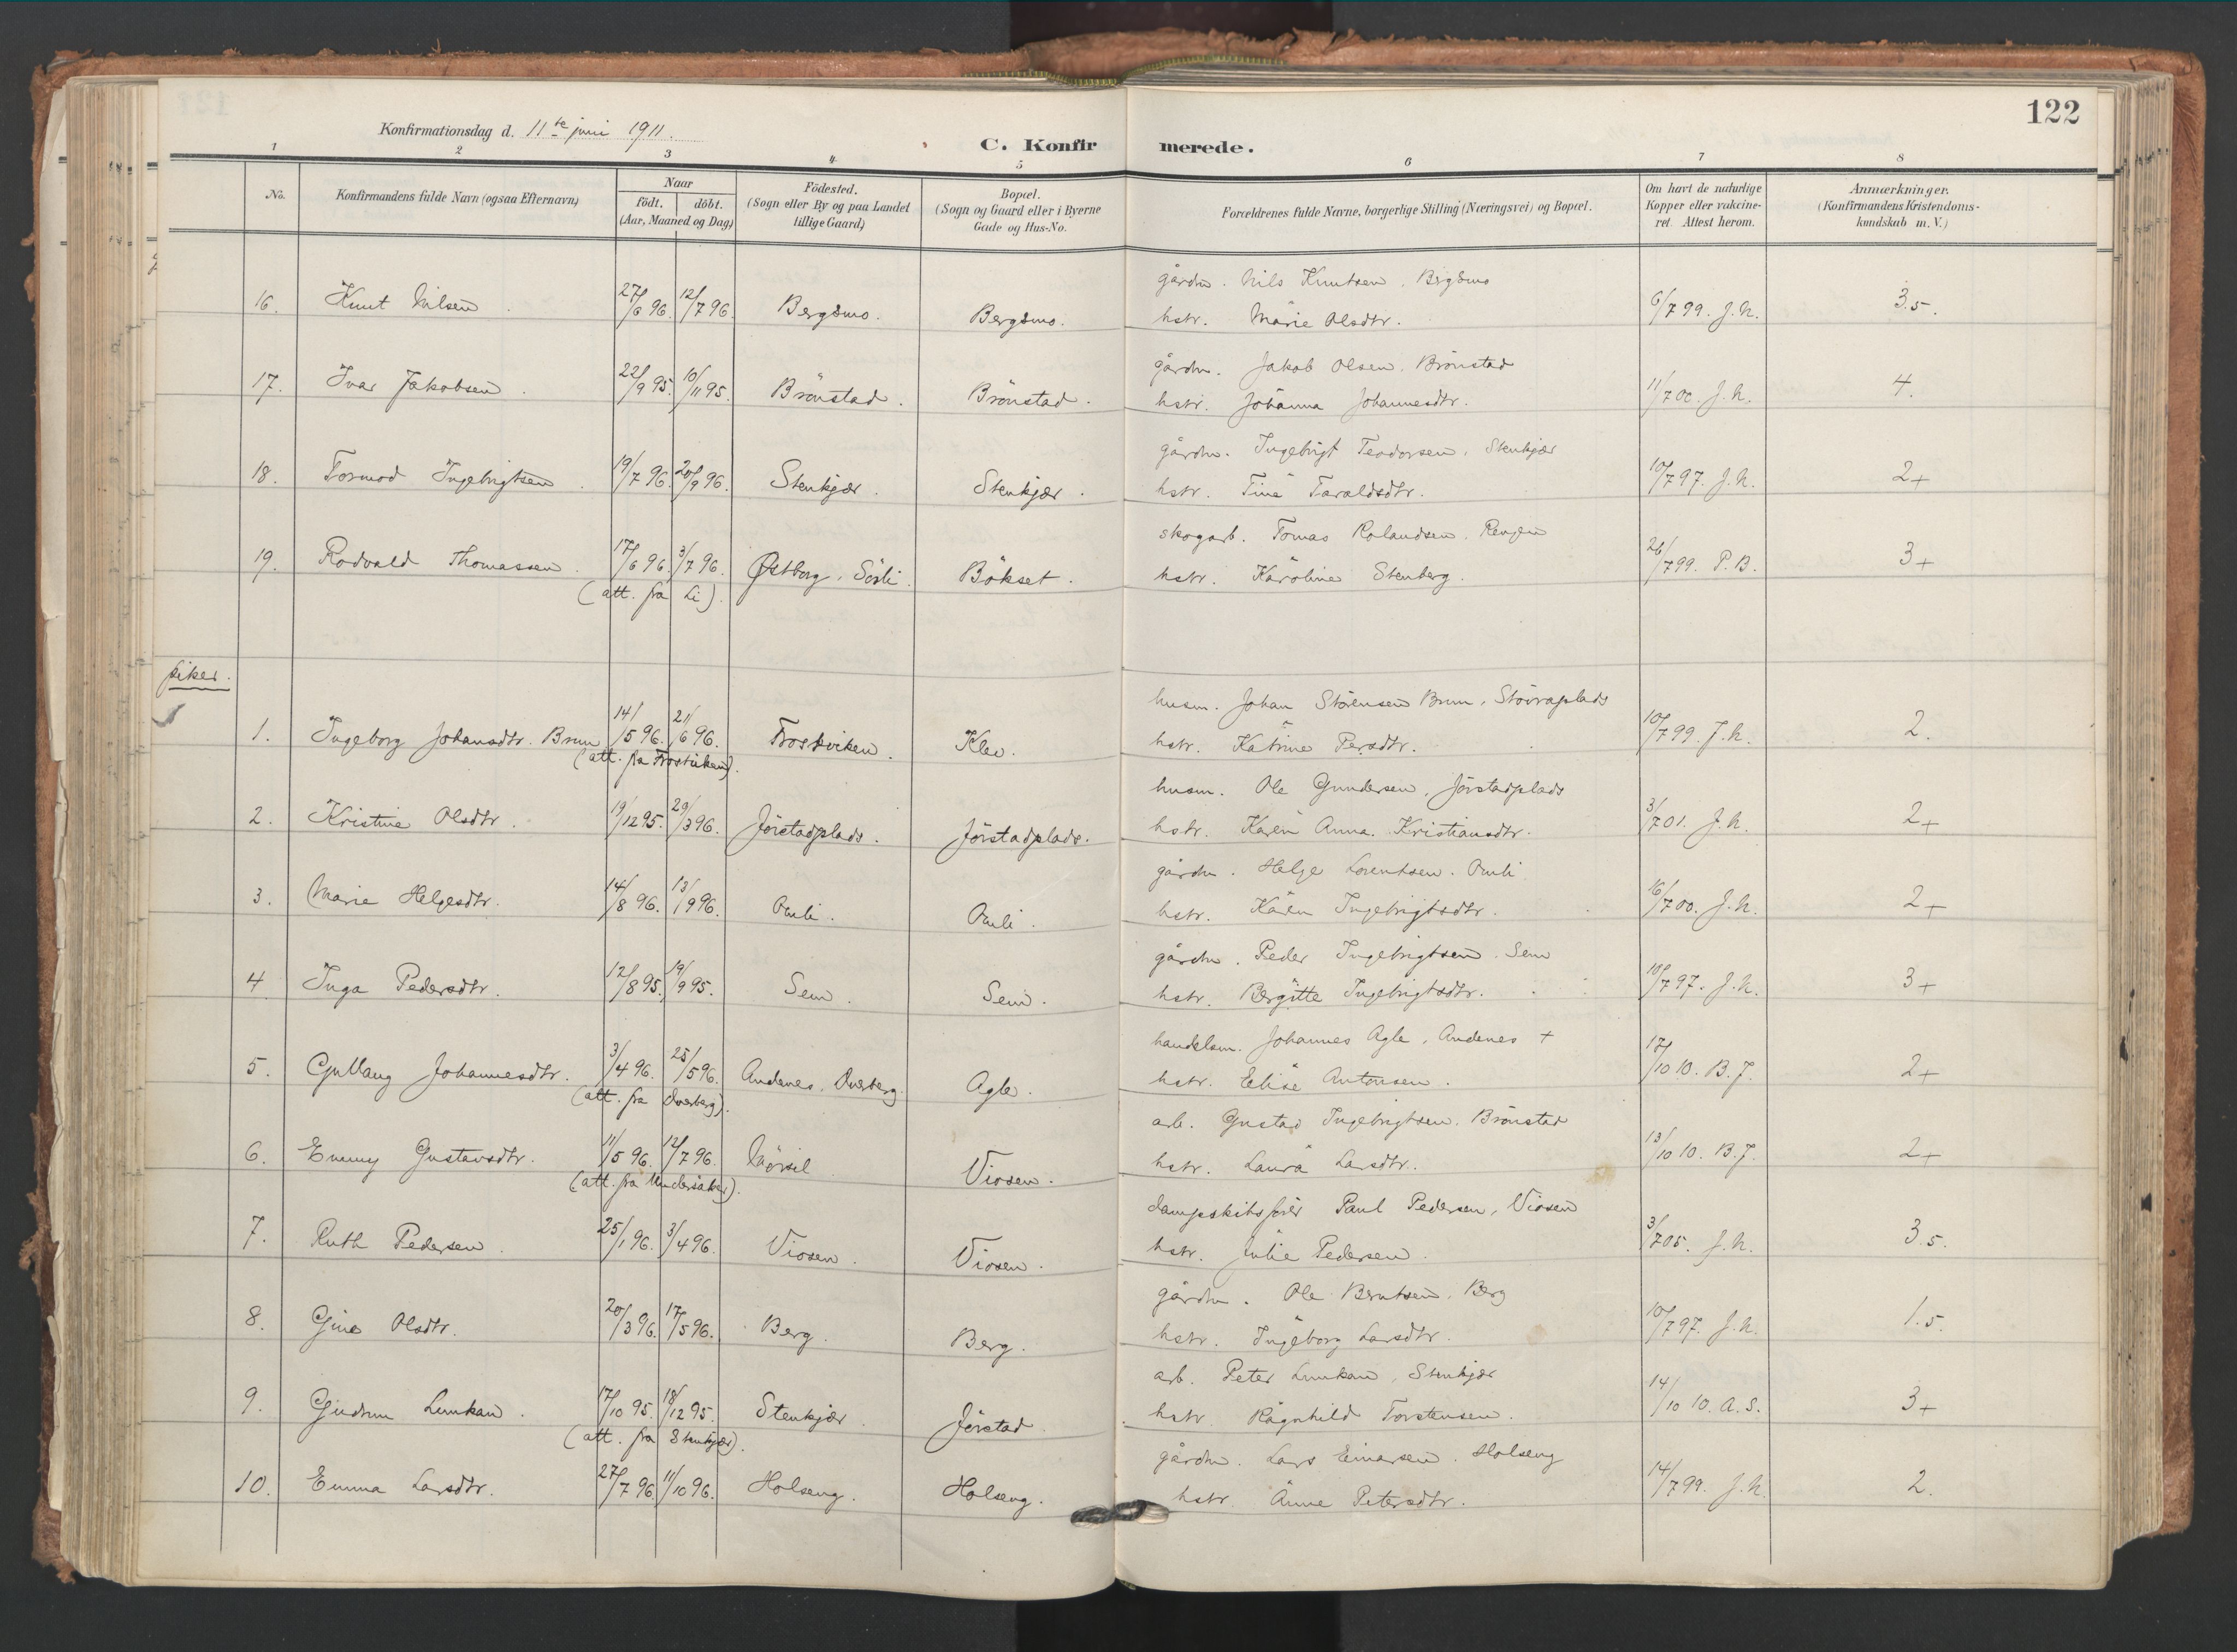 122
Konfirmationsdag d. 11te juni 1911.
C. Konfirmerede.
1 2 3 4 5 6 7 8
No.
Konfirmandens fulde Navn (ogsaa Efternavn)
Naar
födt. döbt.
(Aar, Maaned og Dag)
Födested.
(Sogn eller By og paa Landet
tillige Gaard)
Bopæl.
(Sogn og Gaard eller i Byerne
Gade og Hus-No.
Forældrenes fulde Navne, borgerlige Stilling (Næringsvei) og Bopæl.
Om havt de naturlige
Kopper eller vakcine-
ret. Attest herom.
Anmærkninger.
(Konfirmandens Kristendoms-
kundskab m. V.)
gårdm. Nils Knutsen, Bergsmo
16. Knut Nilsen. 27/6 96. 12/7 96. Bergsmo. Bergsmo. hstr. Marie Olsdtr. 6/7 99. J.N. 3.5.
gårdm. Jakob Olsen. Brönstad
17. Ivar Jakobsen. 22/9 95. 10/11 95. Brönstad. Brönstad. hstr. Johanna Johannesdtr. 11/7 00. J.N. 4.
gårdm. Ingebrigt Teodorsen, Stenkjær
18. Tormod Ingebrigtsen. 19/7 96. 20/9 96. Stenkjær. Stenkjær. hstr. Tina Taraldsdtr. 10/7 97. J.N. 2+
skogarb. Tomas Rolandsen. Rengen
19. Rodvald Thomassen. 17/6 96. 3/7 96. Østborg, Sörli. Bökset. hstr. Karoline Stenberg. 26/7 99. P.B. 3+
(att. fra Li).
piker.
husm. Johan Störensen Brun, Stövraplads
1. Ingeborg Johansdtr. Brun 14/5 96. 21/6 96. Frostviken. Klev. hstr. Katrine Persdtr. 10/7 99. J.N. 2.
(att. fra Frostviken).
husm. Ole Gundersen, Jörstadplads
2. Kristine Olsdtr. 19/12 95. 29/3 96. Jörstadplads. Jörstadplads. hstr. Karen Anna Kristiansdtr. 3/7 01. J.N. 2+
gårdm. Helge Lorentsen. Omli
3. Marie Helgesdtr. 14/8 96. 13/9 96. Omli. Omli. hstr. Karen Ingebrigtsdtr. 16/7 00. J.N. 2+
gårdm. Peder Ingebrigtsen. Sem
4. Inga Pedersdtr. 12/8 95. 19/9 95. Sem. Sem. hstr. Bergitte Ingebrigtsdtr. 10/7 97. J.N. 3+
handelsm. Johannes Agle, Andenes +
5. Gullaug Johannesdtr. 3/4 96. 25/5 96. Andenes, Dverberg. Agle. hstr. Elise Antonsen. 17/10 10. B.J. 2+
(att. fra Dverberg).
arb. Gustav Ingebrigtsen, Brönstad
6. Emmy Gustavsdtr. 11/5 96. 12/7 96. Mörsil. Viosen. hstr. Laura Larsdtr. 13/10 10. B.J. 2+
(att. fra Undersåker).
dampskibsförer Paul Pedersen, Viosen
7. Ruth Pedersen. 25/1 96. 3/4 96. Viosen. Viosen. hstr. Julie Pedersen. 3/7 05. J.N. 3.5.
gårdm. Ole Berntsen. Berg
8. Gina Olsdtr. 20/3 96. 17/5 96. Berg. Berg. hstr. Ingeborg Larsdtr. 10/7 97. J.N. 1.5.
arb. Peter Lunkan, Stenkjær
9. Gudrun Lunkan. 17/10 95. 18/12 95. Stenkjær. Jörstad. hstr. Ragnhild Torstensen. 14/10 10. A.S. 3+
(att. fra Stenkjær).
gårdm. Lars Einarsen. Holseng
10. Emma Larsdtr. 27/7 96. 11/10 96. Holseng. Holseng. hstr. Anne Petersdtr. 14/7 99. J.N. 2.